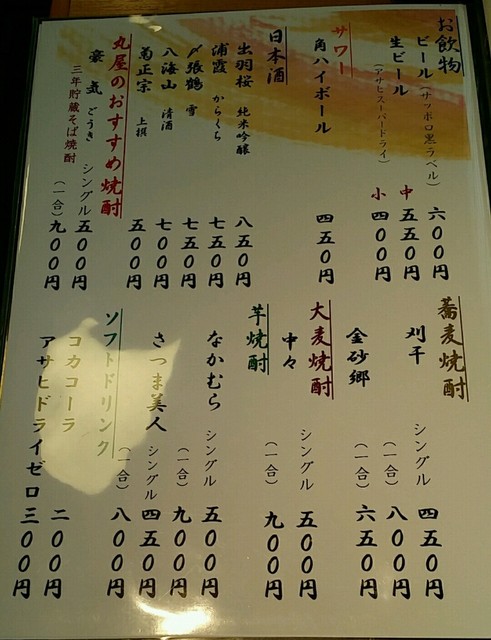 お飲物
ビール（サッポロ黒ラベル） 六〇〇円
生ビール 中 五五〇円
（アサヒスーパードライ） 小 四〇〇円
サワー
角ハイボール 四五〇円
日本酒
出羽桜 純米吟醸 八五〇円
浦霞 からくち 七五〇円
〆張鶴 雪 七五〇円
八海山 清酒 七〇〇円
菊正宗 上撰 五〇〇円
丸屋のおすすめ焼酎
豪気 どうき シングル 五〇〇円
三年貯蔵そば焼酎 （一合） 九〇〇円
蕎麦焼酎
刈干 シングル 四五〇円
（一合） 八〇〇円
金砂郷 （一合） 六五〇円
大麦焼酎
中々 シングル 五〇〇円
（一合） 九〇〇円
芋焼酎
なかむら シングル 五〇〇円
（一合） 九〇〇円
さつま美人 シングル 四五〇円
（一合） 八〇〇円
ソフトドリンク
コカコーラ 二〇〇円
アサヒドライゼロ 三〇〇円